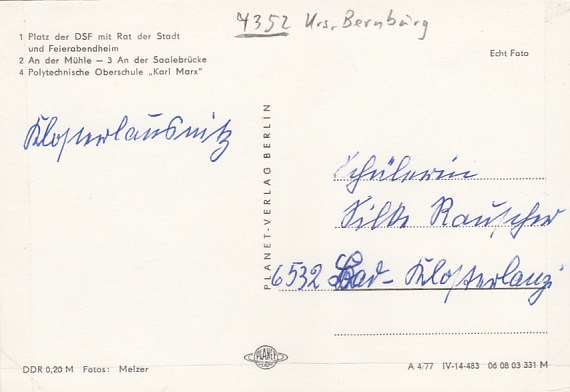 4352 Krs. Bernburg
1 Platz der DSF mit Rat der Stadt
und Feierabendheim
2 An der Mühle – 3 An der Saalebrücke
4 Polytechnische Oberschule „Karl Marx"
Echt Foto
Klosterlausnitz
PLANET-VERLAG BERLIN
Schülerin
Silke Rauscher
6532 Bad-Klosterlanz
DDR 0,20 M Fotos: Melzer
PLANET
A 4/77 IV-14-483 06 08 03 331 M